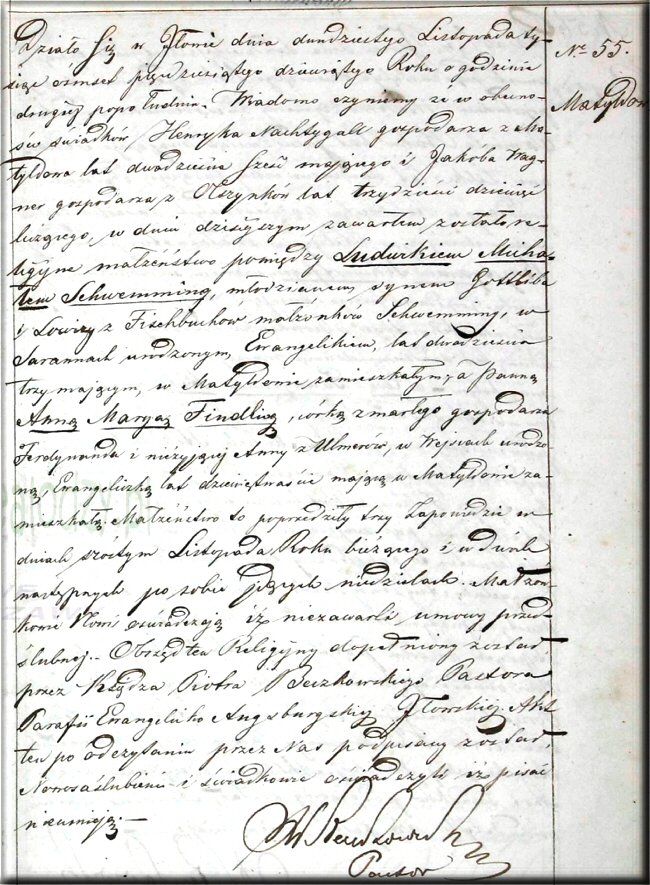 Działo się w Iłowie dnia dwudziestego Listopada ty-
siąc osmset pięćdziesiątego dziewiątego Roku o godzinie
drugiej popołudniu. Wiadomo czynimy że w obecno-
ści świadków Henryka Nachtygall gospodarza z Ma-
tyldowa lat dwadzieścia sześć mającego i Jakóba Wag-
ner gospodarza z Olszynków lat trzydzieści dziewięć
liczącego, w dniu dzisiejszym zawartem zostało re-
ligijne małżeństwo pomiędzy Ludwikiem Micha-
łem Schwemming, młodzianem, synem Gottliba
i Lowizy z Fischbuchów małżonków Schwemming, w
Sarannach urodzonym, Ewangelikiem, lat dwadzieścia
trzy mającym, w Matyldowie zamieszkałym, a Panną
Anną Maryą Findling, córką zmarłego gospodarza
Ferdynanda i nieżyjącej Anny z Ulmerów, w urodzo-
ną, Ewangeliczką lat dziewiętnaście mającą w Matyldowie za-
mieszkałą. Małżeństwo to poprzedziły trzy Zapowiedzie w
dniach szóstym Listopada Roku bieżącego i w dwóch
następnych po sobie idących niedzielach. Małżon-
kowie Nowi oświadczają iż niezawarli umowy przed-
ślubnej. Obrzęd ten Religijny dopełniony został
przez Księdza Piotra Beczkowskiego Pastora
Parafii Ewangelicko Augsburgskiej Iłowskiej. Akt
ten po odczytaniu przez Nas podpisany został,
Nowozaślubieni i świadkowie oświadczyli iż pisać
nieumieją.
Pastor
Nr 55.
Matyldów